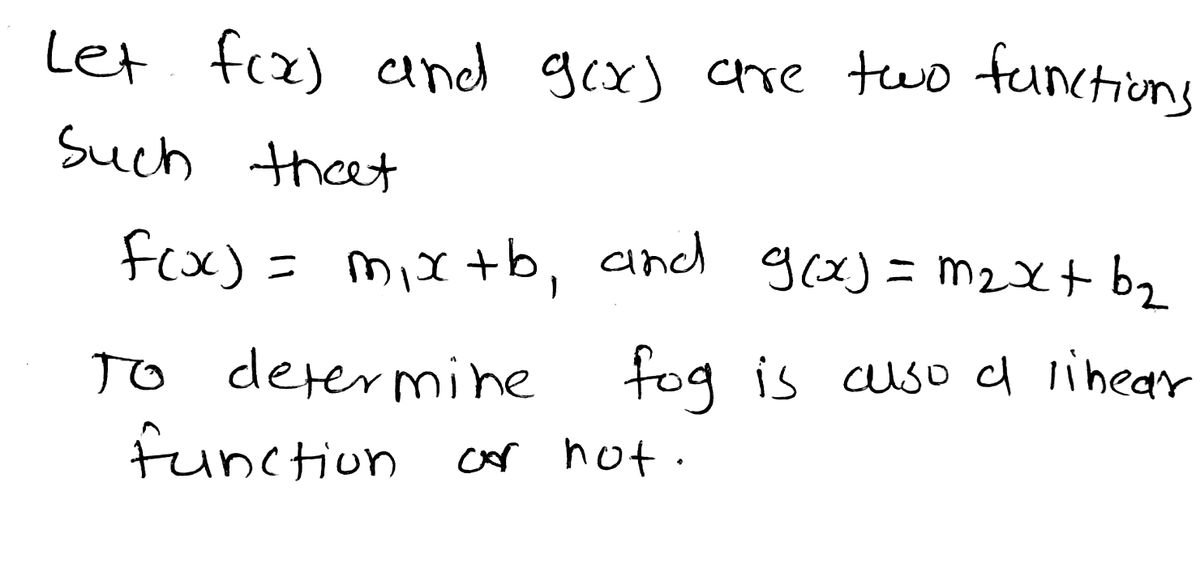 Let f(x) and g(x) are two functions
Such that
f(x) = m₁x + b₁ and g(x) = m₂x + b₂
To determine fog is also a linear
function or not.